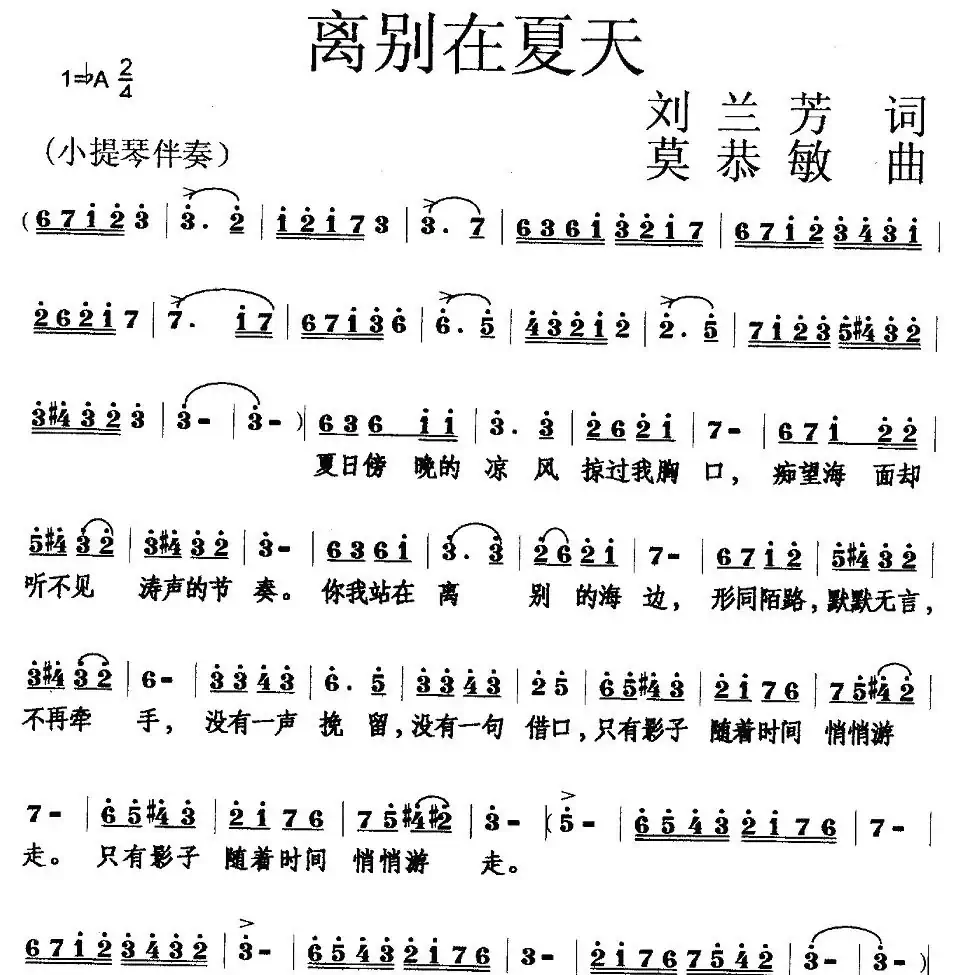 离别在夏天
1=♭A 2/4
刘兰芳 词
(小提琴伴奏)
莫恭敏 曲
(6 7 i 2 3 | 3. 2 | i 2 i 7 3 | 3. 7 | 6 3 6 i 3 2 i 7 | 6 7 i 2 3 4 3 i |
2 6 2 i 7 | 7. i 7 | 6 7 i 3 6 | 6. 5 | 4 3 2 i 2 | 2. 5 | 7 i 2 3 5 #4 3 2 |
3 #4 3 2 3 | 3 - | 3 - ) | 6 3 6 i i | 3. 3 | 2 6 2 i | 7 - | 6 7 i 2 2 |
夏日傍 晚的 凉 风 掠过我胸 口, 痴望海 面却
5 #4 3 2 | 3 #4 3 2 | 3 - | 6 3 6 i | 3. 3 | 2 6 2 i | 7 - | 6 7 i 2 | 5 #4 3 2 |
听不见 涛声的节 奏。 你我站在 离 别 的海 边, 形同陌路, 默默无言,
3 #4 3 2 | 6 - | 3 3 4 3 | 6. 5 | 3 3 4 3 | 2 5 | 6 5 #4 3 | 2 i 7 6 | 7 5 #4 2 |
不再牵 手, 没有一声 挽 留, 没有一句 借口, 只有影子 随着时间 悄悄游
7 - | 6 5 #4 3 | 2 i 7 6 | 7 5 #4 #2 | 3 - | (5 - | 6 5 4 3 2 i 7 6 | 7 - |
走。 只有影子 随着时间 悄悄游 走。
6 7 i 2 3 4 3 2 | 3 - | 6 5 4 3 2 i 7 6 | 3 - | 2 i 7 6 7 5 4 2 | 3 - | 3 - )